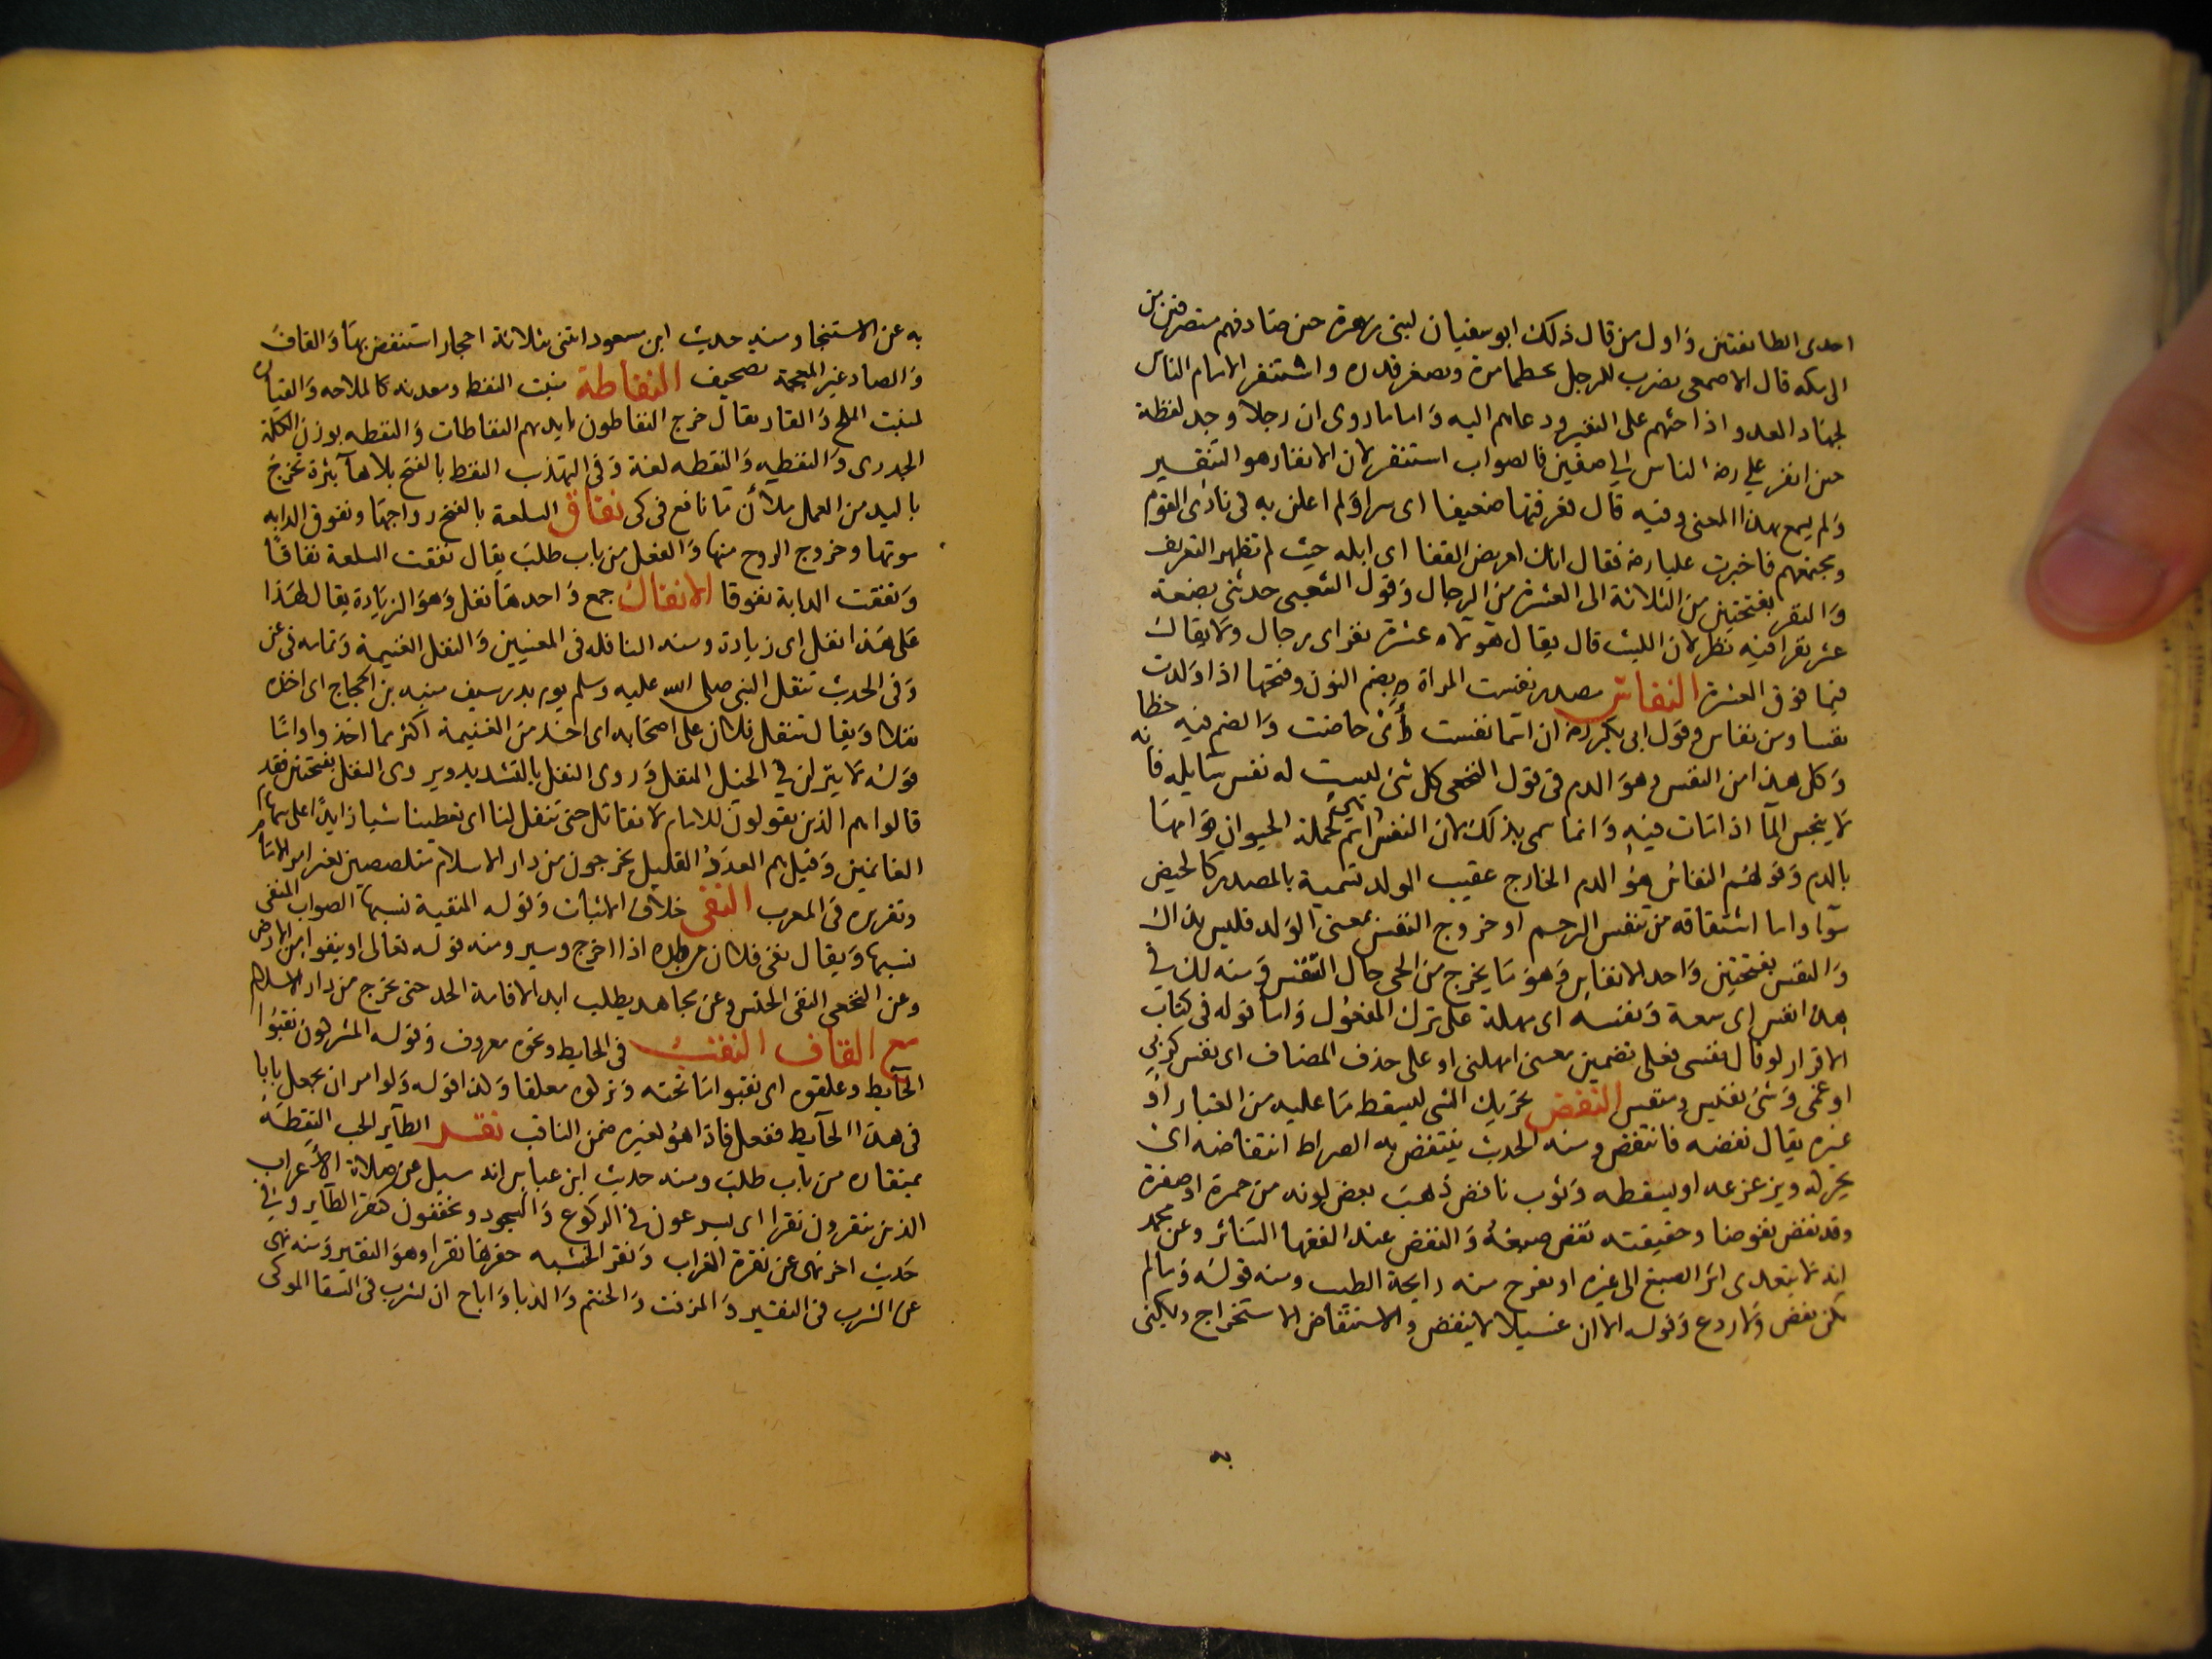 احدى الطائفتين وَاول من قال ذلك ابو سفيان لبنى زهرة حين صادفهم منصرفين من
الى مكه قال الاصمعى يضرب للرجل يحط امره ويصغر قدره واستنفر الامام الناس
لجهاد العدو اذا حثهم على النفير ودعاهم اليه وَاما ما روى ان رجلا وجد لقطة
حين انفر علي رضه الناس الى صفين فالصواب استنفر لان الانفار هو التنفير
وَلم يسمع بهذا المعنى وفيه قال فعرفتها ضعيفا اى سرا وَلم اعلن به فى نادى القوم
ومجتمعهم فاخبرت عليا رضه فقال انك لعريض القفا اى ابله حيث لم تظهر التعريف
وَالنفر بفتحتين من الثلاثة الى العشرة من الرجال وَقول الشعبى حدثنى بضعة
عشر نفرا فيه نظر لان الليث قال يقال هؤلاء عشرة نفر اى رجال ولا يقال
فيما فوق العشرة النفاس مصدر نفست المراة بضم النون وفتحها اذا ولدت
نفسا ومن نفاس وقول ابى بكر رضه ان اسما نفست أىْ حاضت وَالضم فيه خطا
وَكل هذا من النفس وهوَ الدم فى قول النخعى كل شئ ليست له نفس سايله فانه
لا ينجس المآ اذا مات فيه وَانما سمى بذلك لان النفس التى هى اسم لجملة الحيوان قوامها
بالدم وَقولهُم النفاسُ هوُ الدم الخارج عقيب الولد تسمية بالمصدر كالحيض
سوآ واما اشتقاقه من تنفس الرحم او خروج النفس بمعنى الولد فليس بذاك
وَالنفس بفتحتين وَاحد الانفاس وَهو ما يخرج من الحى حال التنفس وَمنه لك فى
هذا نفس اى سعة وَنفسه اى مهلة على ترك المفعول وَاما قوله فى كتاب
الاقرار لو قال نفسى فعلى تضمين معنى امهلنى او على حذف المضاف اى نفس كربي
او غمى وَشئ نفيس ومنفس النفض تحريك الشى ليسقط ما عليه من الغبار اَو
غيره يقال نفضه فانتفض ومنه الحديث ينتفض به الصراط انتفاضه اىْ
يحركه ويزعزعه او يسقطه وَثوب نافض ذهبَ بعض لونه من حمرة او صفرة
وقد نفض نفوضا وحقيقته نفض صبغهُ وَالنفض عند الفقها التناثر وعن محمد
انه لا يتعدى اثر الصبغ الى غيره او يفوح منه رايحة الطيب ومنه قوله وَمالم
يكن نفض وَلا ردع وَقوله الا ان غسيلا لا ينفض وَالاستنفاض الاستخراج ويكنى
به
به عن الاستنجا ومنه حديث ابن مسعود ائتنى بثلاثة احجار استنفض بهَا وَالقافُ
وَالصاد غير المعجمة تصحيف النفاطة منبت النفط ومعدنه كالملاحه وَالقيارة
لمنبت الملح وَالقار يقال خرج النفاطون بايديهم النفاطات وَالنفطه بوزن الكلمة
الجدرى وَالنفطيه وَالنفطه لغة وَفى التهذيب النفط بالفتح بلا هآ بثرة تخرج
باليد من العمل ملأن مَا نافع فى كى نفاق السلعة بالفتح رواجهَا ونفوق الدابه
موتها وخروج الروح منها وَالفعل من باب طلبَ يقال نفقت السلعة نفاقًا
وَنفقت الدابة نفوقا الانفال جمع وَاحدهَا نفل وَهوَ الزيَادة يقال لهذا
عَلى هَذا نفل اى زيادة ومنه النافله فى المعنيين وَالنفل الغنيمة وَتمامه فى غن
وَفى الحديث تنفل النبى صلى الله عليه وسلم يوم بدر سيف منبه بن الحجاج اى اخذه
نفلا وَيقال تنفل فلان على اصحَابه اى اخذ من الغنيمة اكثر مما اخذوا واما
قوَله لا يترلن في الحبل المنفل وَروى النفل بالتشديد ويروى النفل بفتحتين فقد
قالوا هم الذين يقولون للامام لا نقاتل حتى تنفل لنا اى تعطينا شيا زايدًا على سهام
الغانمين وَقيل هم العدَدُ القليل يخرجون من دار الاسلام متلصصين بغير امر الامام
وتقريره فى المعرب النفى خلاف الاثبات وَقوله المنفية نسبها الصواب المنفى
نسبها وَيقال نفى فلان من بلده اذا اخرج وسير ومنه قوله تعالى او ينفوا من الارض
وعن النخعى النفى الحبس وعن مجاهد يطلب ابدا لاقامة الحد حتى يخرج من دار الاسلام
مع القاف النقب فى الحايط ونحوه معروف وَقوله المشركون نقبوُا
الحَايط وعلقوه اى نقبوا مَا تحته وَتركوه معلقا وَلذا قوله وَلو امر ان يجعل بابا
فى هذا الحَايط ففعل فاذا هوُ لغيره ضمن الناقب نقر الطآير الحب التقطَهُ
بمنقاره من باب طلبَ ومنه حديث ابن عباس انه سيل عن صلاة الاَعراب
الذين ينقرون نقرا اى يسرعون فى الركوع وَالسجود ويخففون كنقر الطآير وَفي
حَديث اخر نهى عن نقرة الغراب وَنقر الخشبه حفرهَا نقرا وهوَ النقير وَمنه نهى
عن الشرب فى النقير وَالمزفت وَالحنتم وَالدبا وَاباح ان يشرب فى السقا الموكى